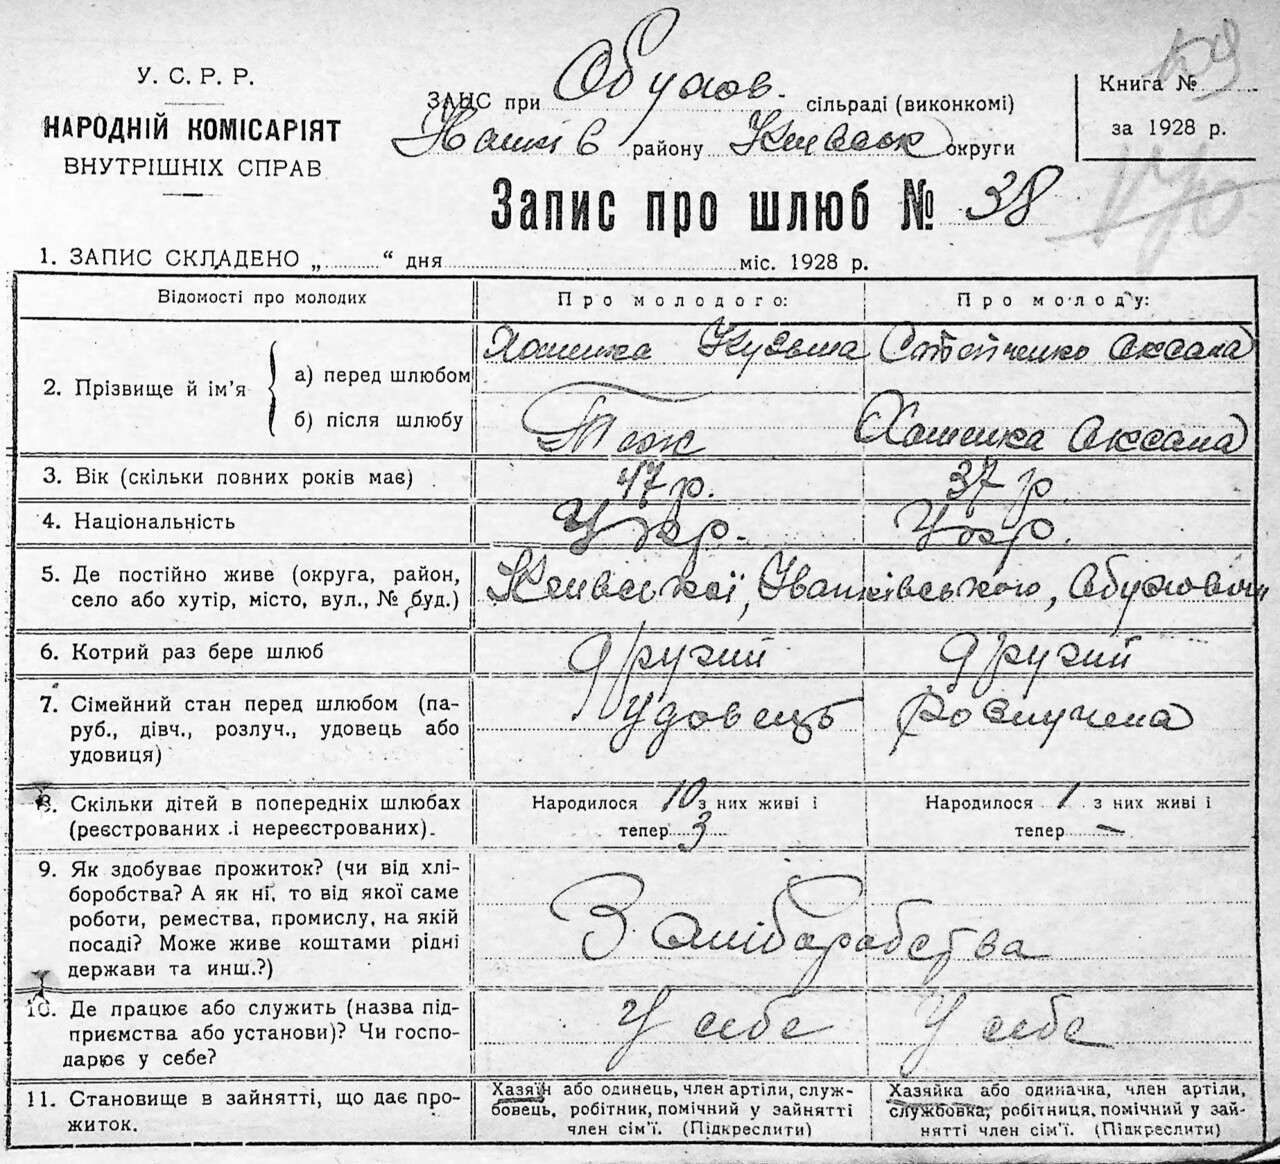 У. С. Р. Р.
НАРОДНІЙ КОМІСАРІЯТ
ВНУТРІШНІХ СПРАВ
ЗАГС при Обухов. сільраді (виконкомі)
району Київськ округи
Книга № 159
за 1928 р.
Запис про шлюб № 38
1. ЗАПИС СКЛАДЕНО „ “ дня міс. 1928 р.
Відомості про молодих
Про молодого:
Про молоду:
2. Прізвище й ім’я
а) перед шлюбом
Хоменка Кузьма
Оксана
б) після шлюбу
Тож
Хоменка Оксана
3. Вік (скільки повних років має)
47 р.
37 р.
4. Національність
Укр.
Укр.
5. Де постійно живе (округа, район,
село або хутір, місто, вул., № буд.)
Київської, Іванківською,
6. Котрий раз бере шлюб
другий
другий
7. Сімейний стан перед шлюбом (па-
руб., дівч., розлуч., удовець або
удовиця)
удовець
Розлучена
8. Скільки дітей в попередніх шлюбах
(реєстрованих і нереєстрованих).
Народилося 10 з них живі і
тепер 3
Народилося 1 з них живі і
тепер —
9. Як здобуває прожиток? (чи від хлі-
боробства? А як ні, то від якої саме
роботи, ремества, промислу, на якій
посаді? Може живе коштами рідні
держави та инш.?)
З хліборобства
10. Де працює або служить (назва під-
приємства або установи)? Чи госпо-
дарює у себе?
У себе
У себе
11. Становище в зайнятті, що дає про-
житок.
Хазяїн або одинець, член артіли, служ-
бовець, робітник, помічний у зайнятті
член сім’ї. (Підкреслити)
Хазяйка або одиначка, член артіли,
службовка, робітниця, помічний у зай-
нятті член сім’ї. (Підкреслити)